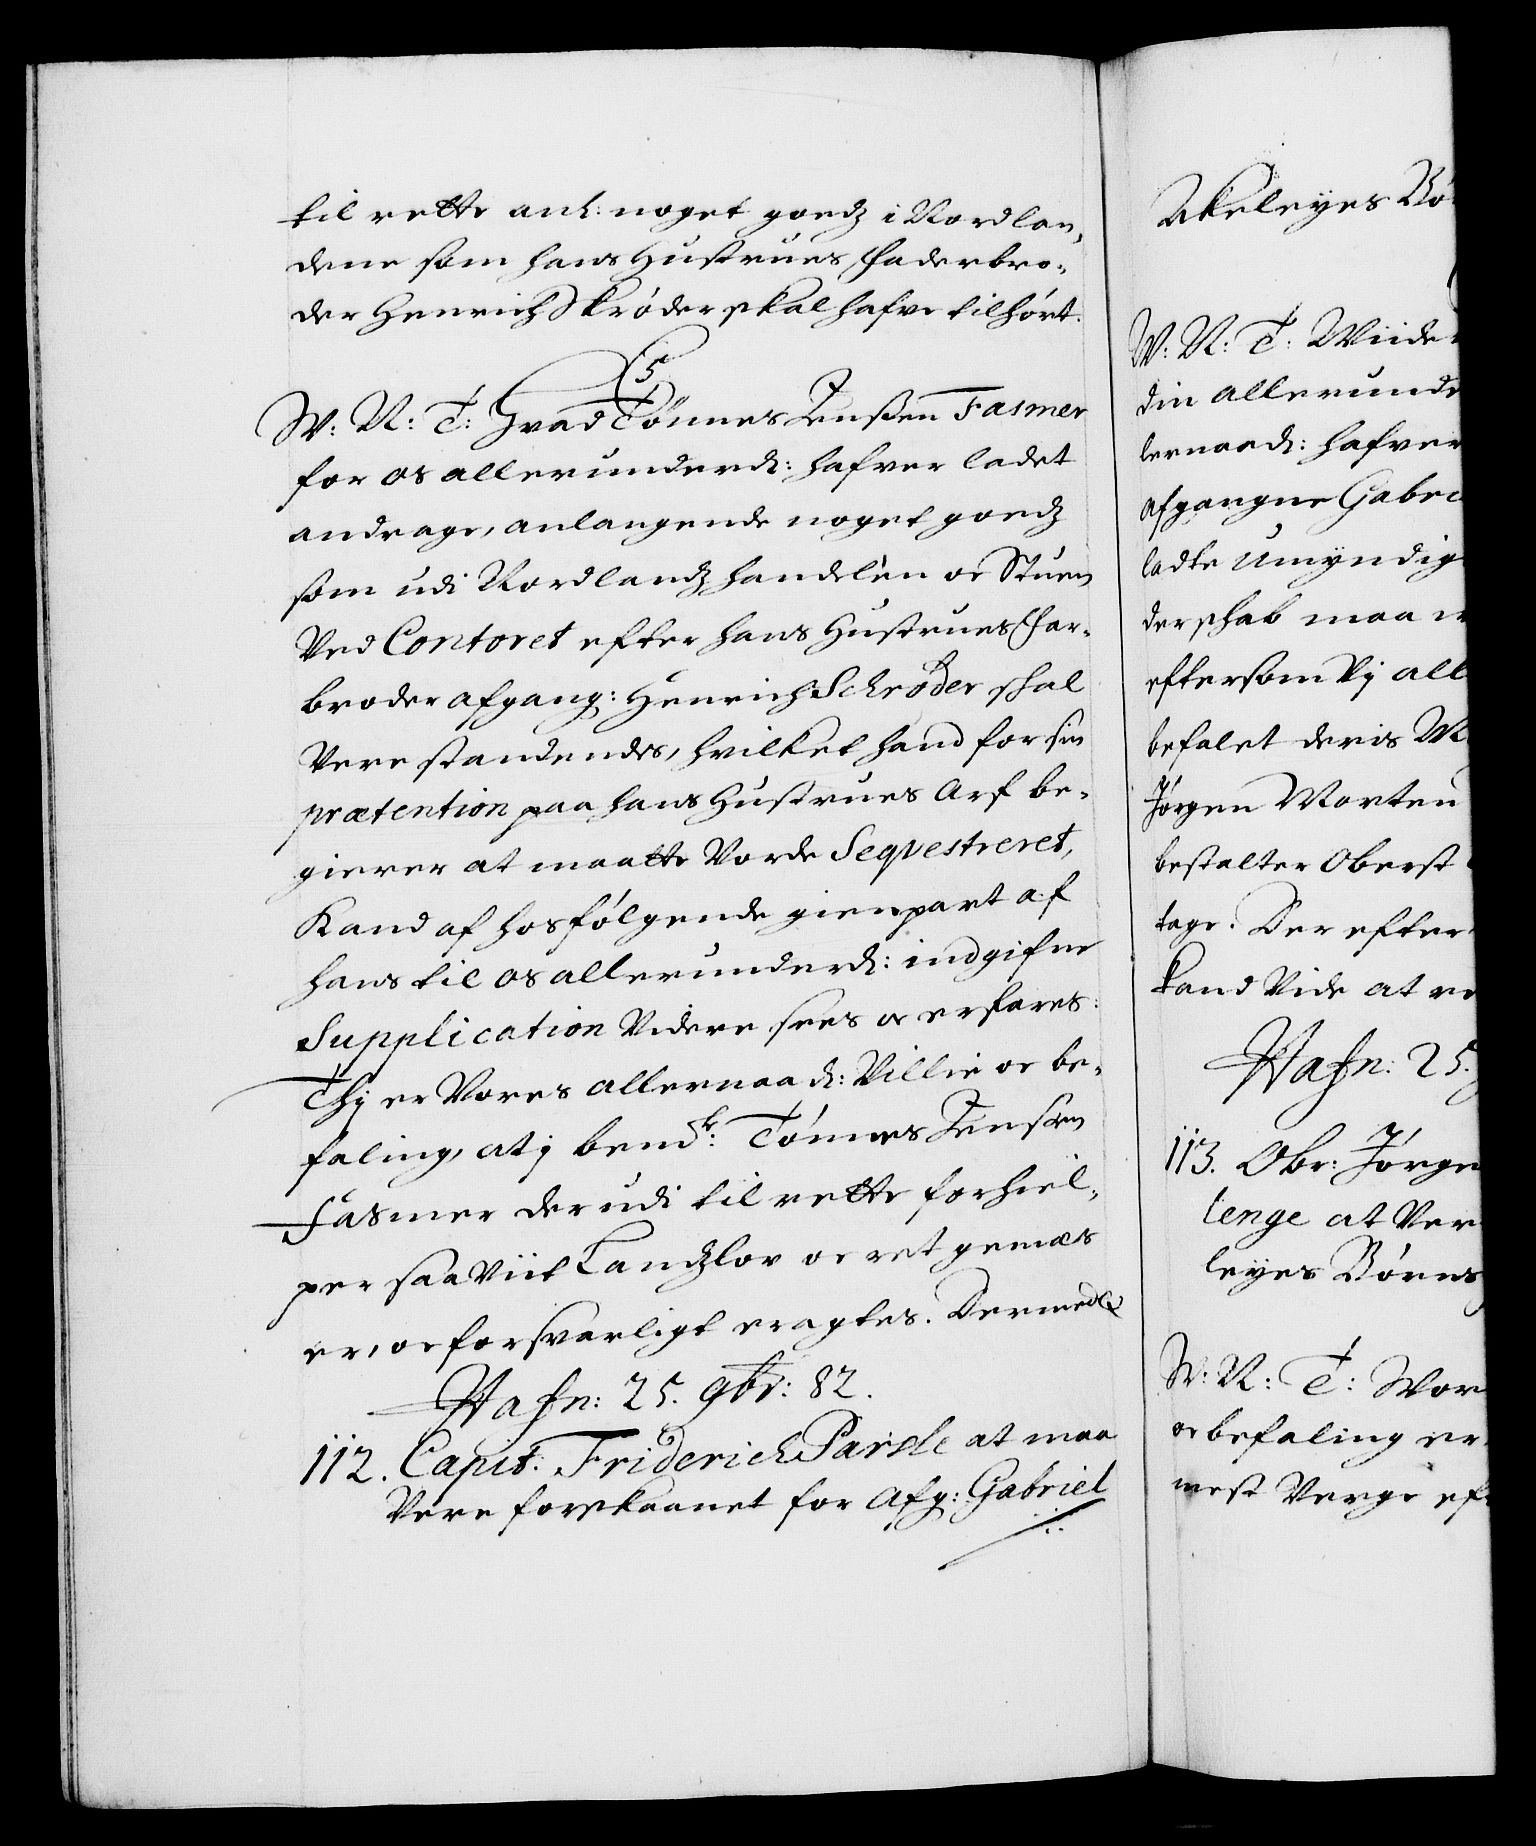 til rette anl: noget goedz i Nordlan,
dene som hans Hustrues Faderbro,
der Henrich Skrøder skal hafve tilhørt.
C5
W: N: T: Hvad Tønnes Jenssen Fasmer
for os allerunderd: hafver ladet
andrage, anlangende noget goedz
som udi Nordlandz handelen oc Stuen
Ved Contoret efter hans Hustrues Far,
broder afgang: Henrich Schrøder skal
Vere standendes, hvilket hand for sin
prætention paa hans Hustrues Arf be,
gierer at maatte Vorde Seqvestreret,
Kand af hosfølgende gienpart af
hans til os allerunderd: indgifne
Supplication Videre sees oc erfares:
Thj er Vores allernaad: Villie oc be,
faling, at j bemdte: Tønnes Jensen
Fasmer der udi til rette forhiel,
per saa Viit Landzlov oc ret gemæs
er, oc forsvarligt eragtes. Dermed &
Hafn: 25. 9br: 82.
112. Capit: Friderich Parsle at maa
Vere forskaanet for Afg: Gabriel
Akeleyes Bø
W: N: T: Wiide
din allerunde
lernaad: hafver
afgangne Gabri
ladte Umyndig
derskab maa
eftersom Vj all
befalet deris
Jørgen Morten
bestalter Oberst
tage. Der efter
kand Vide at re
Hafn: 25.
113. Obr: Jørge
lenge at Ver
leyes Børns
W: N: T: Vor
oc befaling er
nest Verge eft